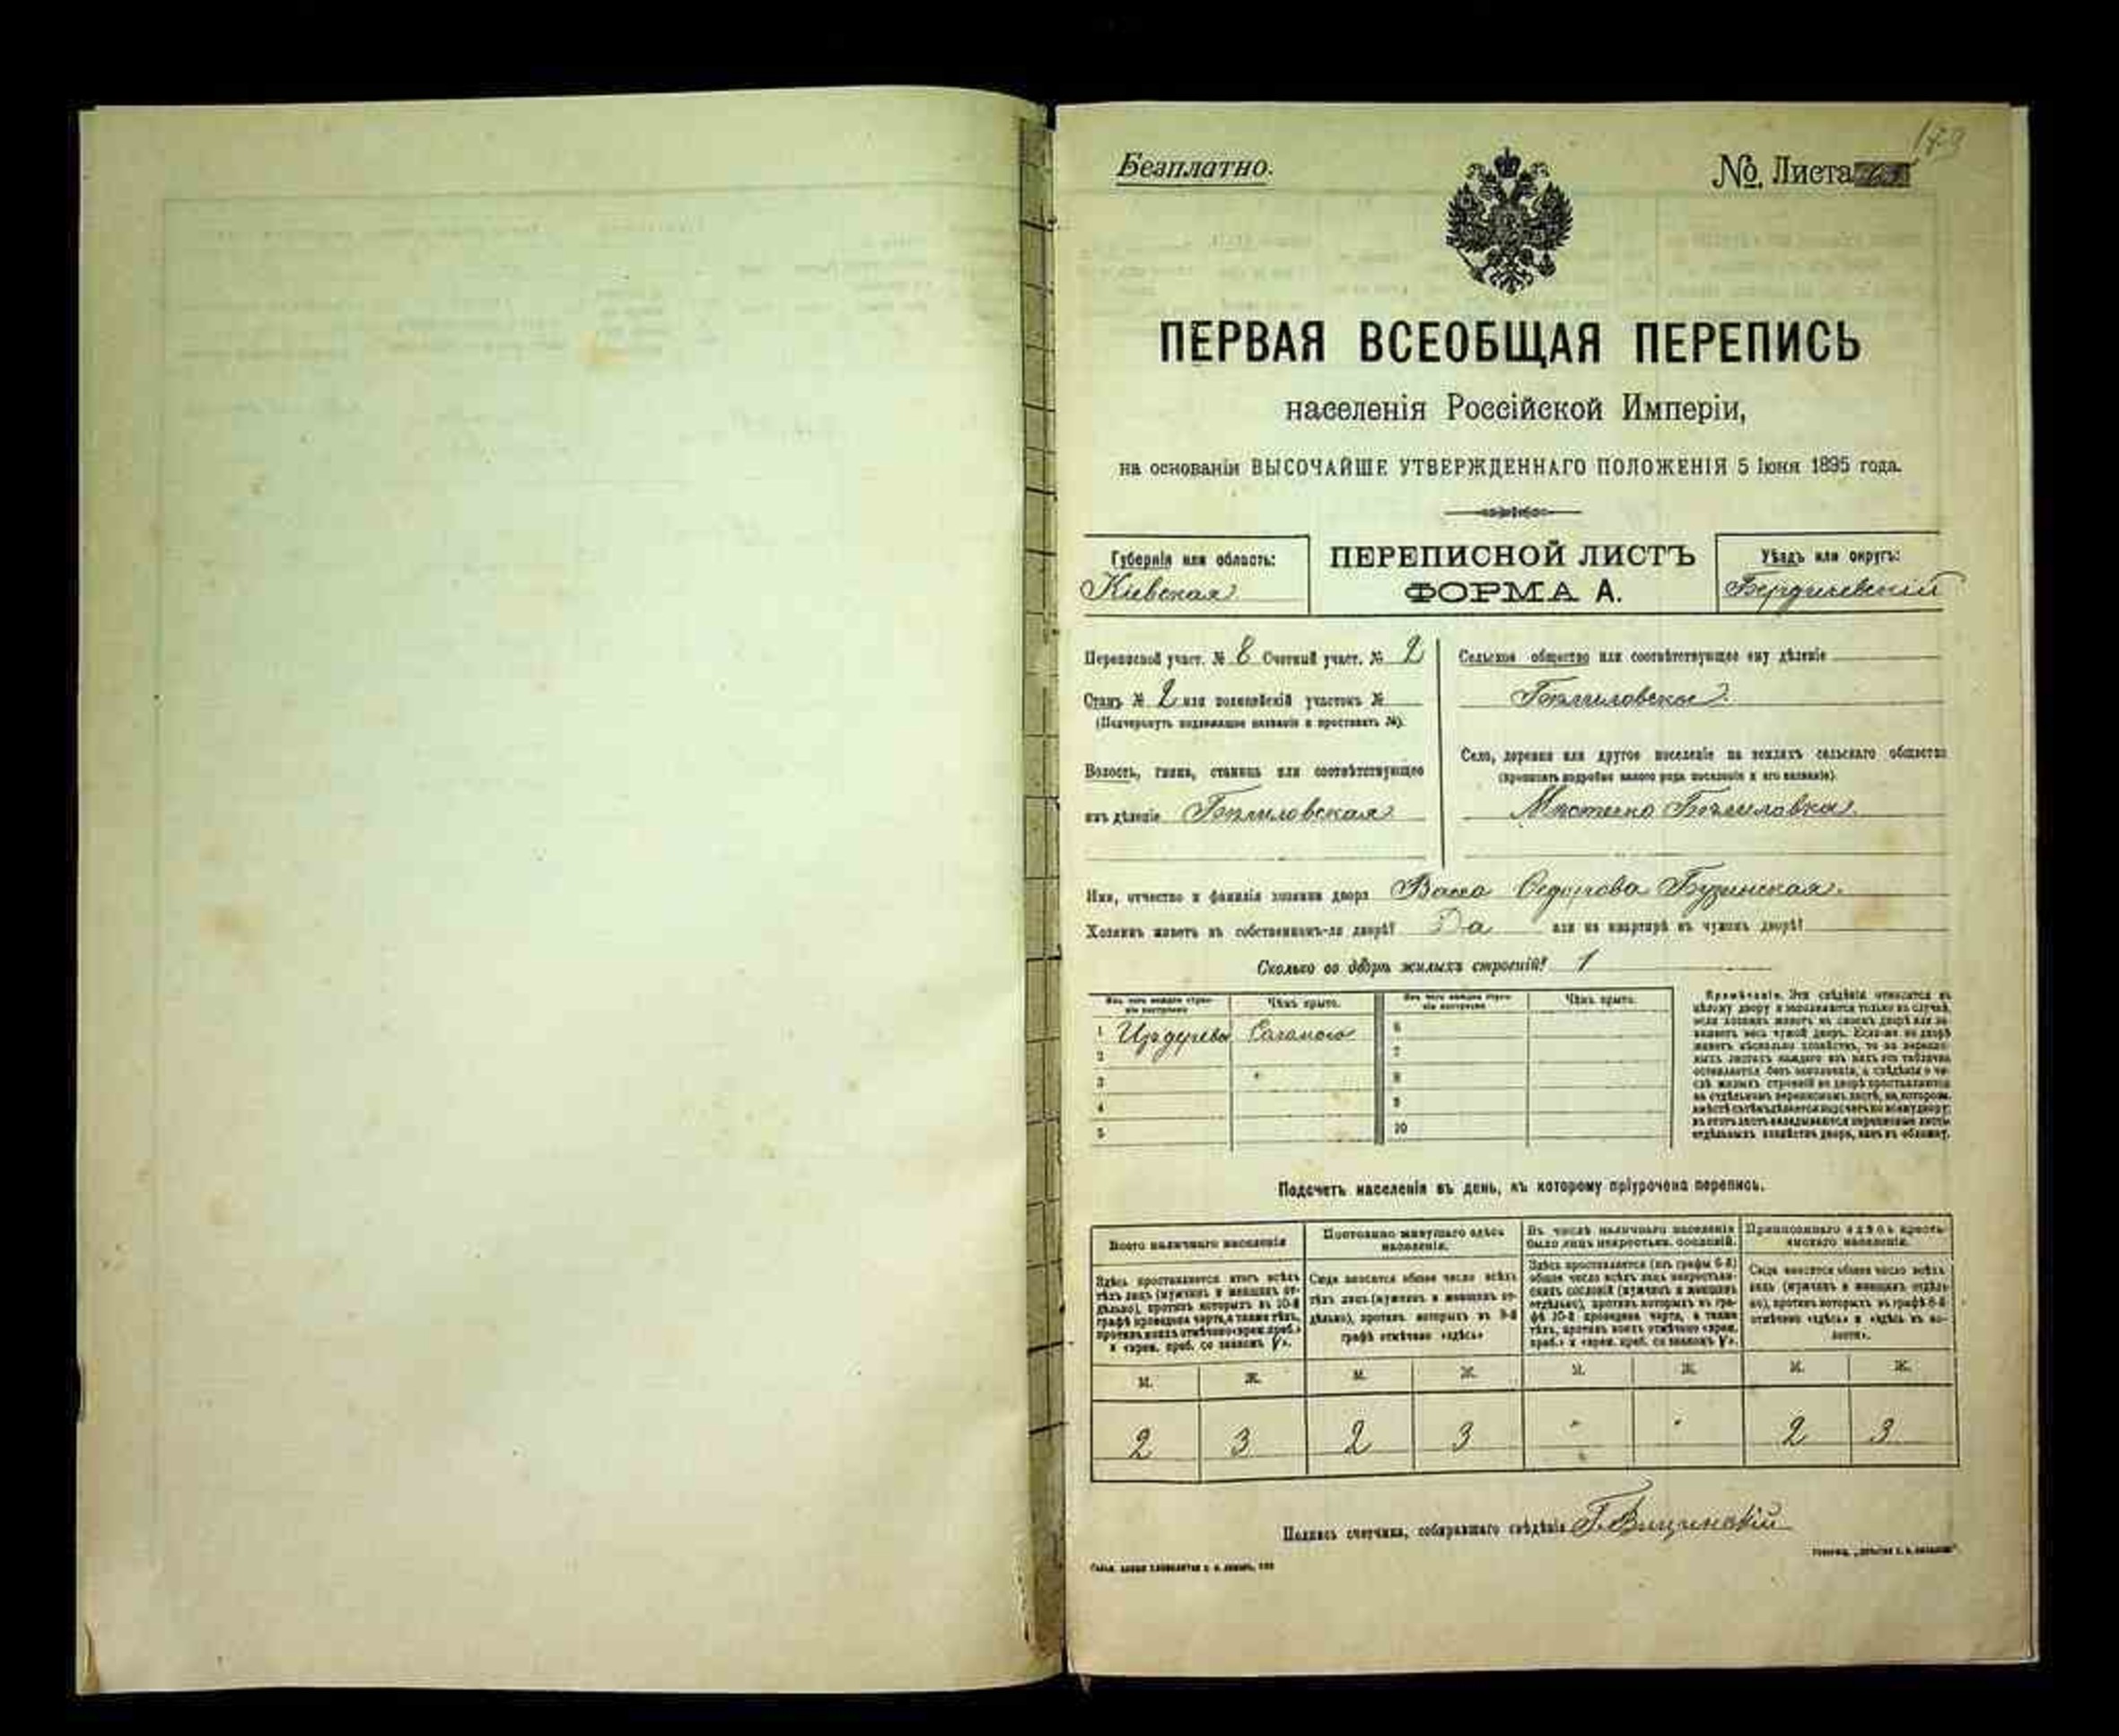 179
Безплатно.
№ Листа
ПЕРВАЯ ВСЕОБЩАЯ ПЕРЕПИСЬ
населенія Россійской Имперіи,
на основаніи ВЫСОЧАЙШЕ УТВЕРЖДЕННАГО ПОЛОЖЕНІЯ 5 Іюня 1895 года.
Губернія или область:
Кіевская
ПЕРЕПИСНОЙ ЛИСТЪ
ФОРМА А.
Уѣздъ или округъ:
Бердичевскій
Переписной участ. № 8 Счетный участ. № 2
Станъ № 2 или полицейскій участокъ №
(Подчеркнуть надлежащее названіе и проставить №).
Волость, гмина, станица или соотвѣтствующее
имъ дѣленіе
Сельское общество или соотвѣтствующее ему дѣленіе
Село, деревня или другое поселеніе на земляхъ сельскаго общества
(прописать подробно какого рода поселеніе и его названіе).
Имя, отчество и фамилія хозяина двора Васса Федорова Бузинская.
Хозяинъ живетъ въ собственномъ-ли дворѣ? Да или на квартирѣ въ чужомъ дворѣ?
Сколько во дворѣ жилыхъ строеній? 1
Изъ чего каждое строеніе построено
Чѣмъ крыто.
Изъ чего каждое строеніе построено
Чѣмъ крыто.
1 Изъ дерева Соломою
2
3
4
5
6
7
8
9
10
Примѣчаніе. Эти свѣдѣнія относятся къ
цѣлому двору и заполняются только въ случаѣ,
если хозяинъ живетъ въ своемъ дворѣ или за-
нимаетъ весь чужой дворъ. Если же во дворѣ
живетъ нѣсколько хозяйствъ, то на перепис-
ныхъ листахъ каждаго изъ нихъ эта табличка
оставляется безъ заполненія, а свѣдѣнія о чи-
слѣ жилыхъ строеній во дворѣ проставляются
на отдѣльномъ переписномъ листѣ, на которомъ
вмѣстѣ съ тѣмъ дѣлается подсчетъ по всему двору;
въ этотъ листъ вкладываются переписные листы
отдѣльныхъ хозяйствъ двора, какъ въ обложку.
Подсчетъ населенія въ день, къ которому пріурочена перепись.
Всего наличнаго населенія
Здѣсь проставляется итогъ всѣхъ
тѣхъ лицъ (мужчинъ и женщинъ от-
дѣльно), противъ которыхъ въ 10-й
графѣ проведена черта, а также тѣхъ,
противъ коихъ отмѣчено «врем. преб.»
и «врем. преб. со знакомъ V».
Постоянно живущаго здѣсь
населенія.
Сюда вносится общее число всѣхъ
тѣхъ лицъ (мужчинъ и женщинъ от-
дѣльно), противъ которыхъ въ 9-й
графѣ отмѣчено «здѣсь»
Въ числѣ наличнаго населенія
было лицъ некрестьян. сословій.
Здѣсь проставляется (изъ графы 6-й)
общее число всѣхъ лицъ некрестьян-
скихъ сословій (мужчинъ и женщинъ
отдѣльно), противъ которыхъ въ гра-
фѣ 10-й проведена черта, а также
тѣхъ, противъ коихъ отмѣчено «врем.
преб.» и «врем. преб. со знакомъ V».
Приписаннаго здѣсь кресть-
янскаго населенія.
Сюда вносится общее число всѣхъ
лицъ (мужчинъ и женщинъ отдѣль-
но), противъ которыхъ въ графѣ 8-й
отмѣчено «здѣсь» и «здѣсь въ во-
лости».
М. Ж. М. Ж. М. Ж. М. Ж.
2 3 2 3 2 3
Подпись счетчика, собиравшаго свѣдѣнія